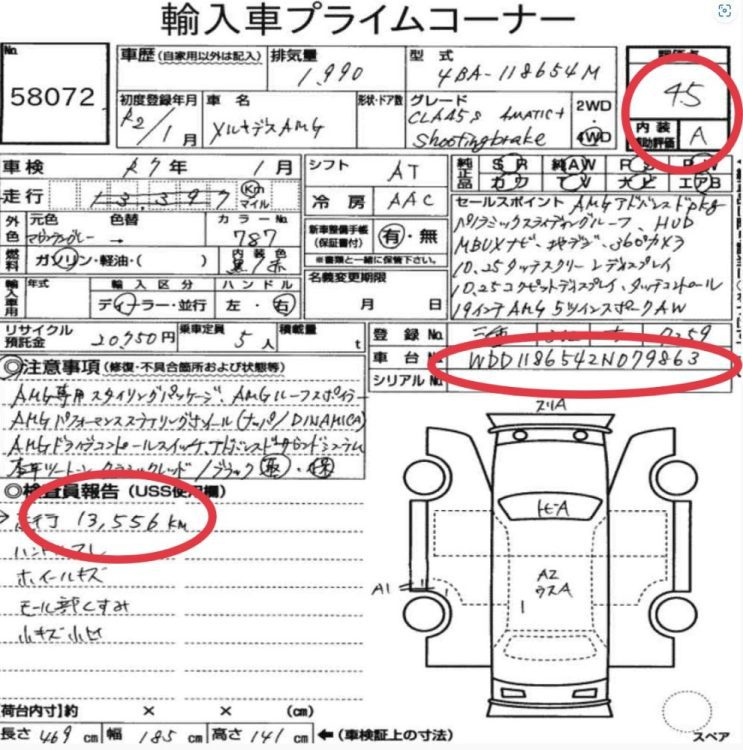 輸入車プライムコーナー
No. 58072
車歴 (自家用以外は記入) 排気量 1,990 型式 4BA-118654M 評価点 4.5
初度登録年月 R2/1月 車名 メルセデスAMG 形状・ドア数 グレード CLA45S 4MATIC+ Shootingbrake 2WD 4WD 内装補助評価 A
車検 R7年 1月 シフト AT 純正品 SR 純AW PS PW
走行 13,397 Km マイル 冷房 AAC カワ TV ナビ エアB
外色 元色 色替 カラーNo. 787 新車整備手帳 (保証書付) 有・無 ※書類と一緒に保管下さい。
セールスポイント AMGアドバンストpkg
パノラミックスライディングルーフ、HUD
MBUXナビ、地デジ、360カメラ
10.25タッチスクリーンディスプレイ
10.25コクピットディスプレイ、タッチコントロール
19インチAMG 5ツインスポークAW
燃料 ガソリン・軽油・( ) 内装色 黒/赤 名義変更期限 月 日
輸入車用 年式 輸入区分 ディーラー・並行 ハンドル 左・右
リサイクル預託金 20,950円 乗車定員 5人 積載量 t 登録No.
車台No. WDD1186542N079863
シリアルNo.
◎注意事項 (修復・不具合箇所および状態等)
AMG専用スタイリングパッケージ、AMGルーフスポイラー
AMGパフォーマンスステアリングホイール(ナッパ/DINAMICA)
AMGドライブコントロールスイッチ、アドバンストサウンドシステム
本革ツートーン クラシックレッド/ブラック 取・保
◎検査員報告 (USS使用欄)
走行 13,556 km
ハンドルスレ
ホイールキズ
モール部くすみ
小キズ小凹
スリA
トビーA
A2
ウスA
A1
スペア
【荷台内寸】約 × × (cm)
長さ 469 cm 幅 185 cm 高さ 141 cm ←(車検証上の寸法)